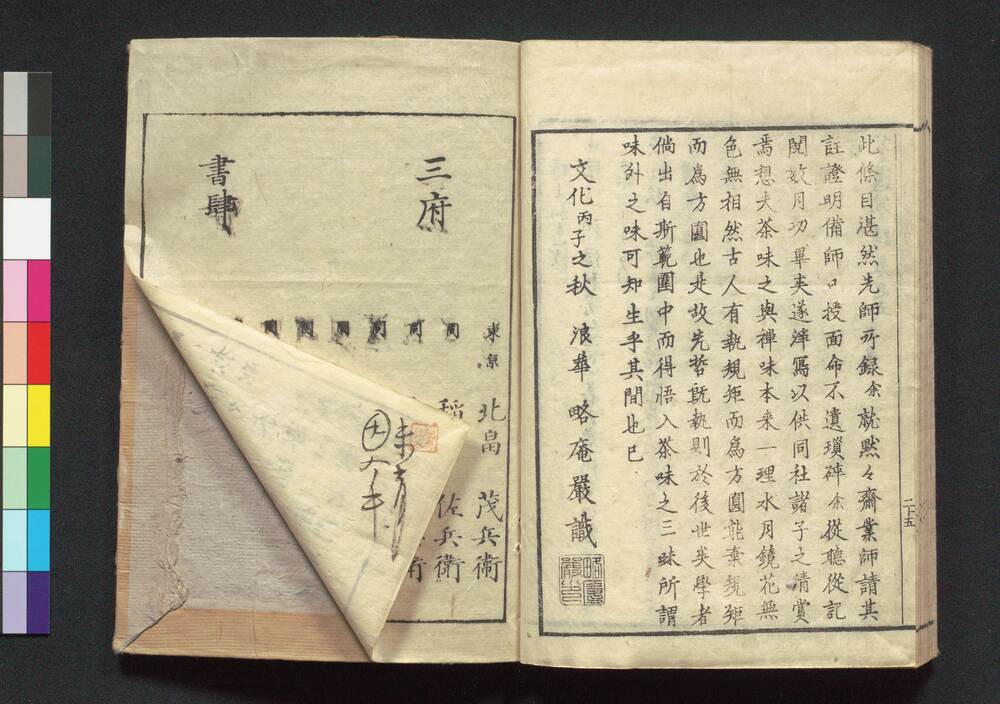 此條目湛然先師所録余就黙々齋業師請其
註證明備師口授面命不遺瑣碎余從聽從記
閲数月功畢矣遂淨寫以供同社諸子之清賞
焉想夫茶味之與禪味本来一理水月鏡花無
色無相然古人有執規矩而為方圓能棄規矩
而為方圓也是故先哲既執則於後世矣學者
倘出自斯範圍中而得悟入茶味之三昧所謂
味外之味可知生乎其間也已
文化丙子之秋 浪華 略庵嚴識
二十五
三府
書肆
東京
北畠 茂兵衛
稲 佐兵衛